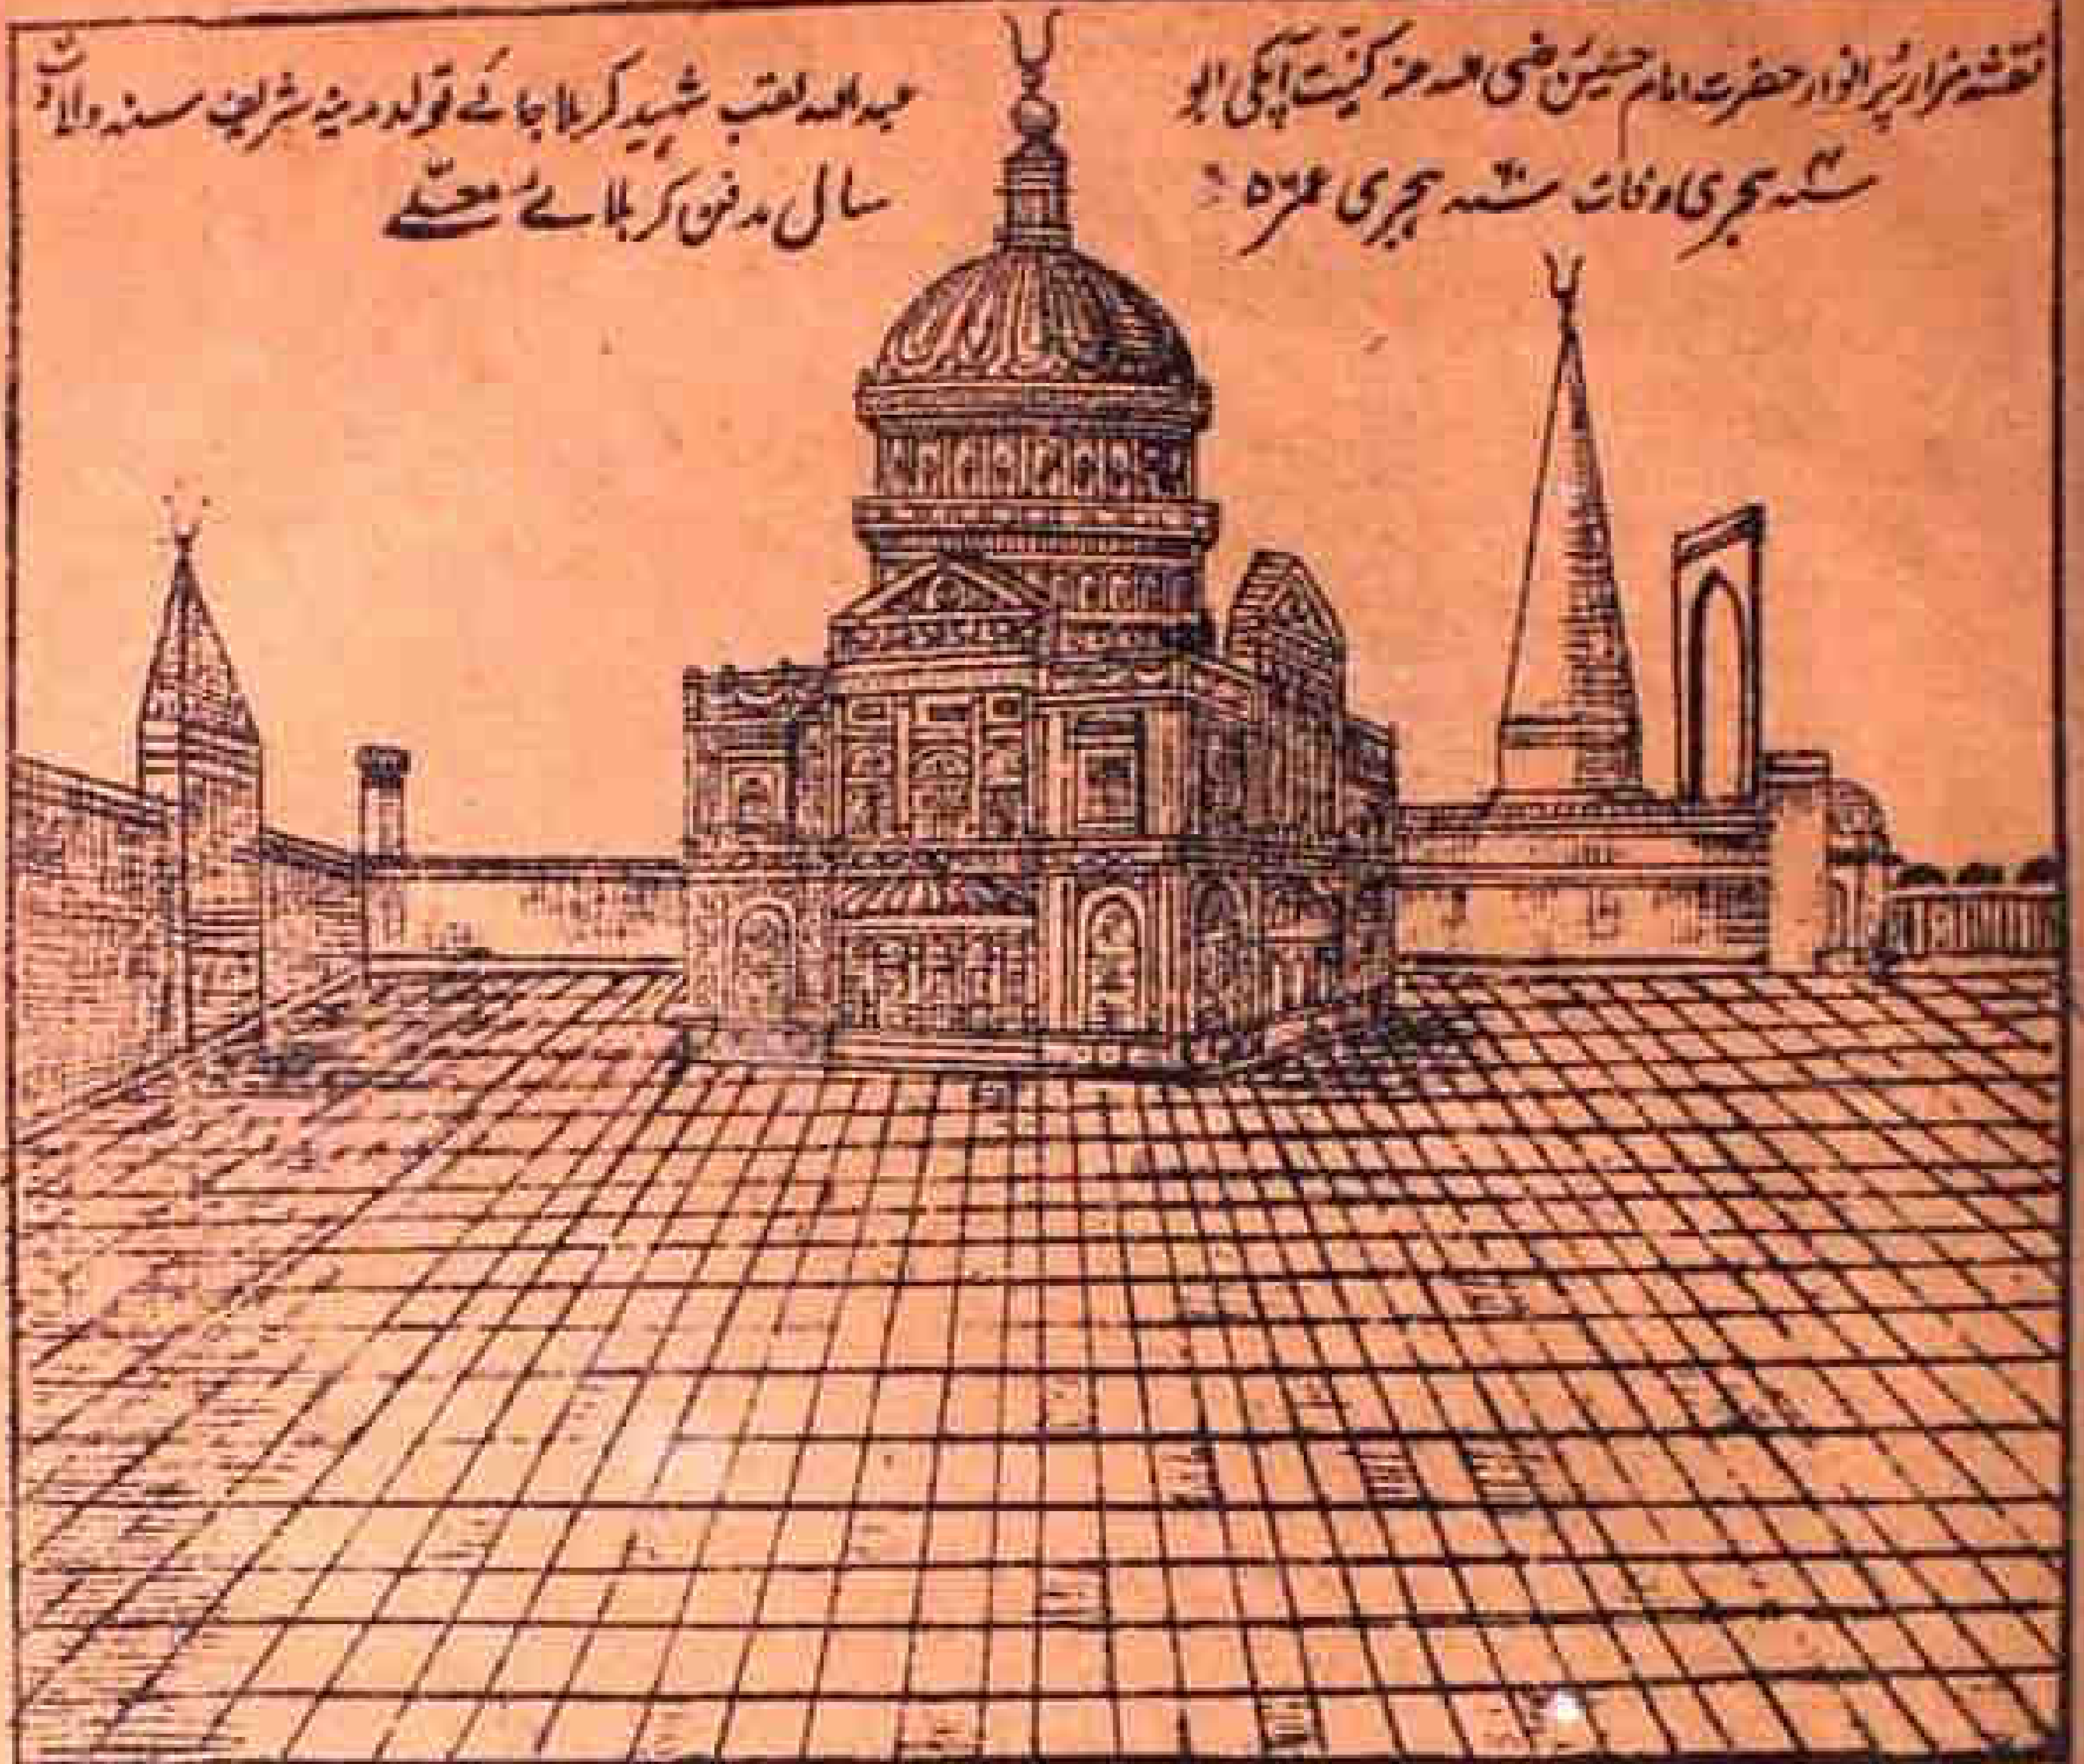 نقشہ مزار پُر انوار حضرت امام حسینؑ رضی اللہ عنہ کنیت آپکی ابو عبداللہ لقب شہید کربلا جائے تولد مدینہ شریف سنہ ولادت
۴ سنہ ہجری وفات سنہ ۶۰ ہجری عمر ۵۶ سال مدفن کربلائے معلّے